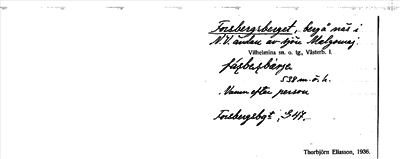 Forsbergsberget, berg å näs i
N.V. ändan av sjön Malgomaj.
Vilhelmina sn. o. tg., Västerb. l.
538 m.ö.h.
Namn efter person
Forsbergsbgt
Thorbjörn Eliasson, 1936.